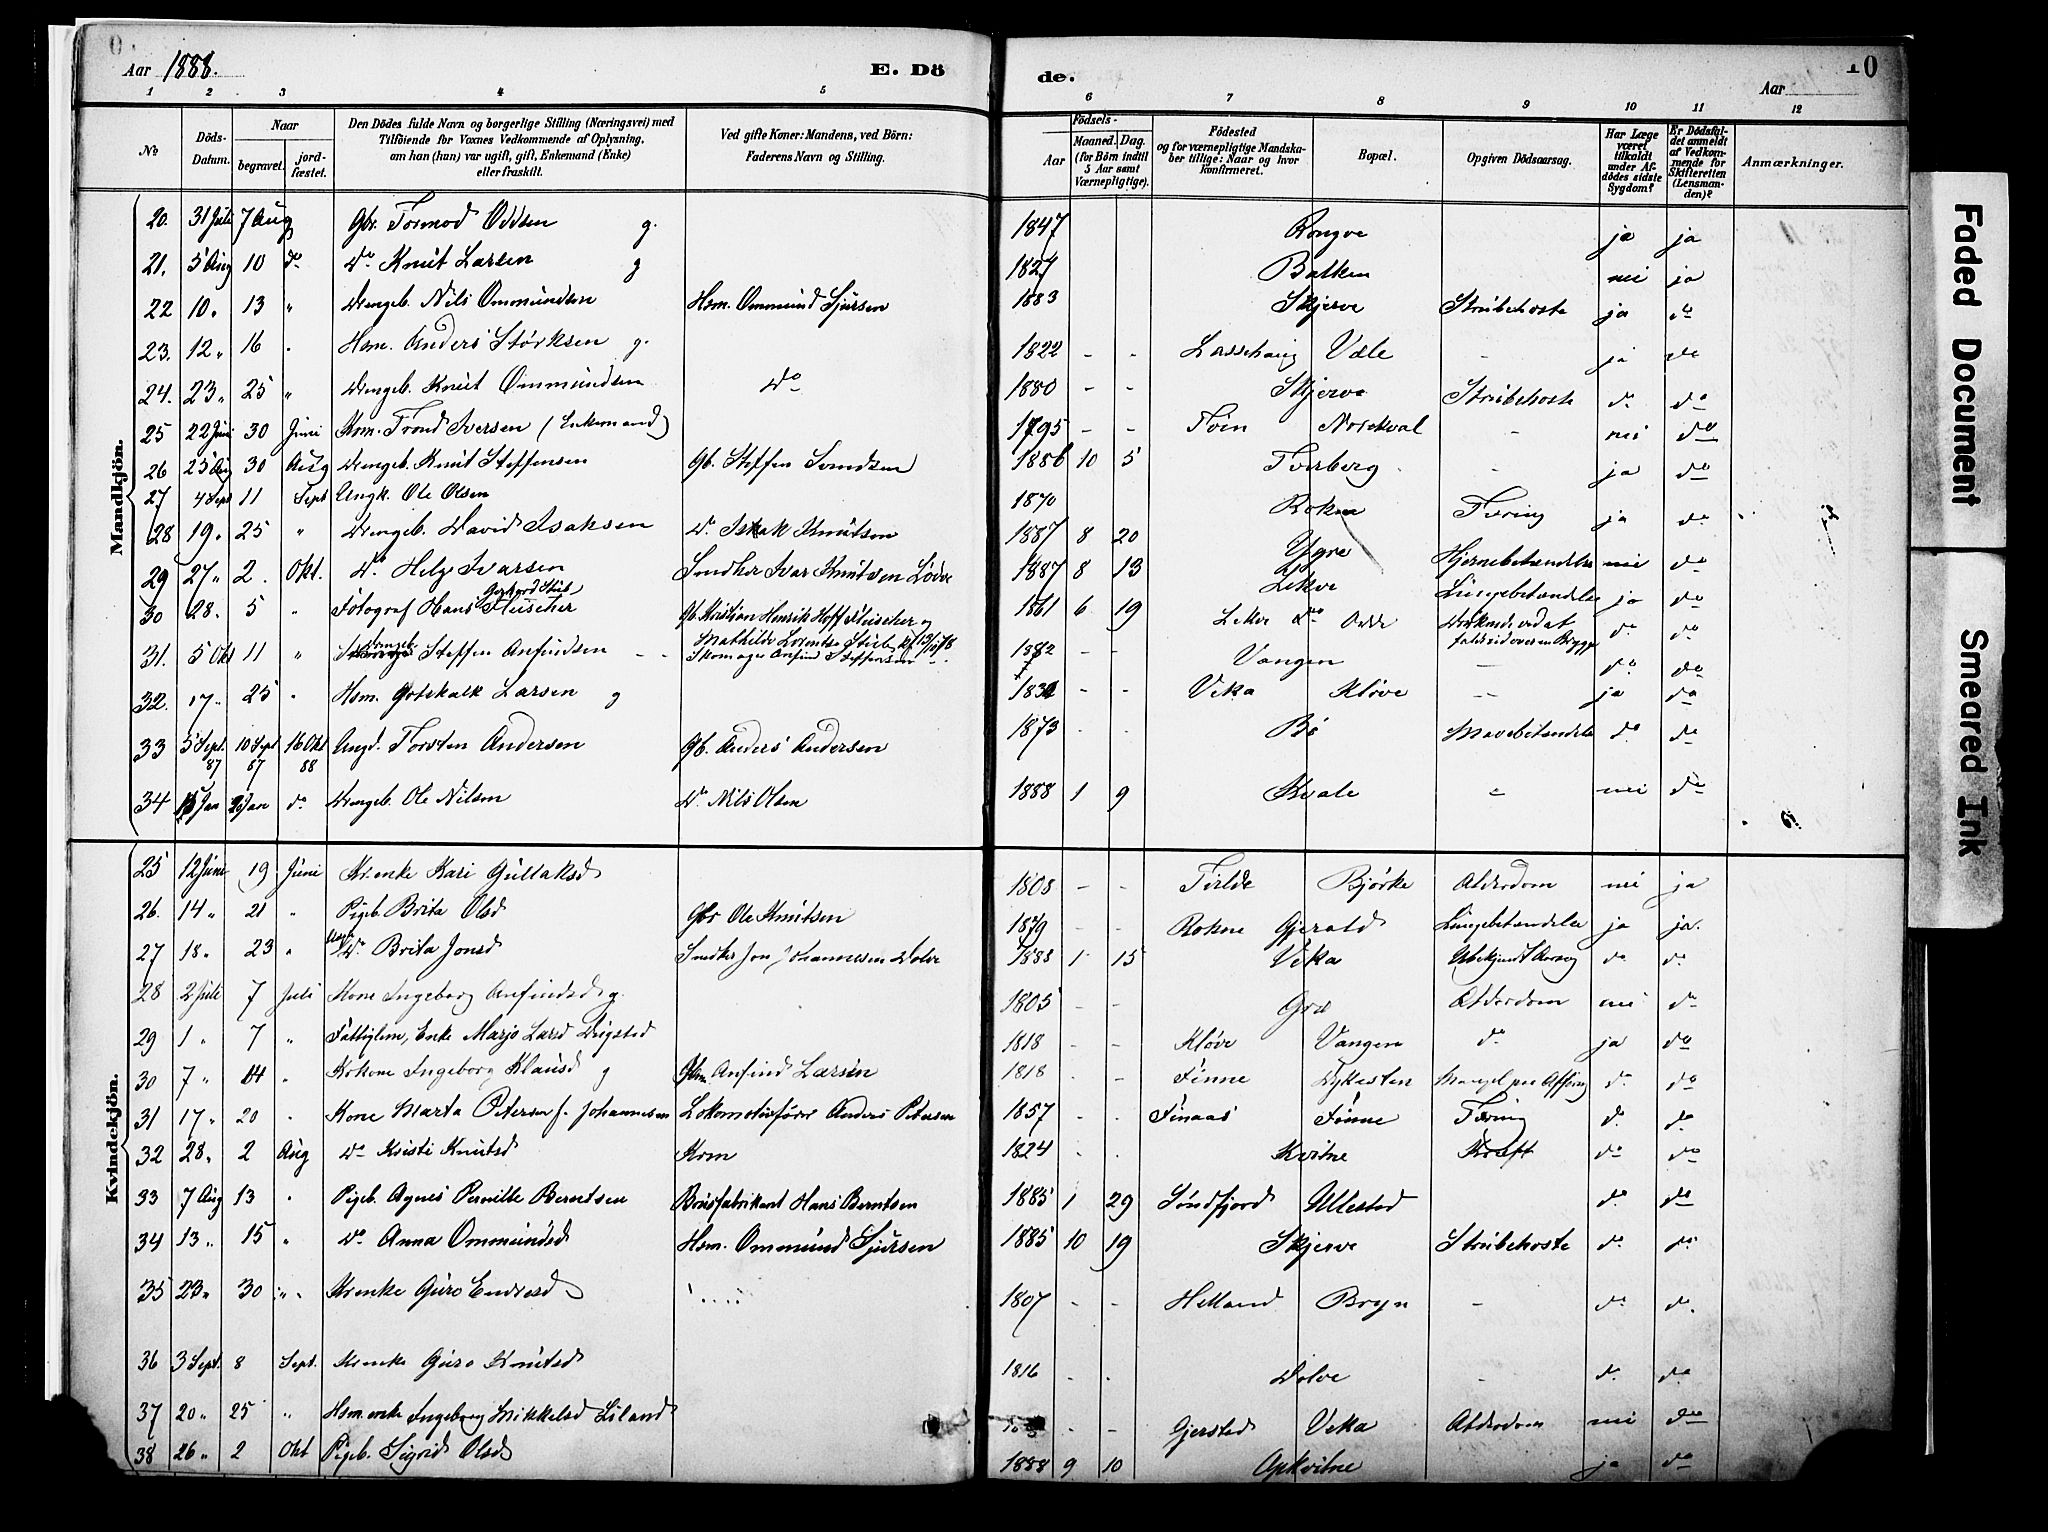 Aar 1888. E. Dö de. 10
Aar
1 2 3 4 5 6 7 8 9 10 11 12
No Döds-Datum. Naar begravet. jord-fæstet. Den Dödes fulde Navn og borgerlige Stilling (Næringsvei) med Tilföiende for Voxnes Vedkommende af Oplysning, om han (hun) var ugift, gift, Enkemand (Enke) eller fraskilt. Ved gifte Koner: Mandens, ved Börn: Faderens Navn og Stilling. Födsels- Aar Maaned. Dag. (for Börn indtil 5 Aar samt Værnepligtige). Födested og for værnepligtige Mandska-ber tillige: Naar og hvor konfirmeret. Bopæl. Opgiven Dödsaarsag. Har Læge været tilkaldt under Af-dödes sidste Sygdom? Er Dödsfal-det anmeldt af Vedkom-mende for Skifteretten (Lensman-den)? Anmærkninger.
Mandkjön.
20. 31 Juli 7 Aug Gbr. Tormod Oddsen g. 1847 Rongve ja ja
21. 5 Aug 10 do Do Knut Larsen g 1827 Bakken nei ja
22 10 " 13 " Drengeb. Nils Ommundsen Hsm. Ommund Sjursen 1883 Skjerve Strubehoste ja do
23. 12 " 16 " Hsm. Anders Størksen g. 1822 - - Lassehaug Væle - ja do
24. 23 " 25 " Drengeb. Knut Ommundsen Do 1880 - - Skjerve Strubehoste do do
25 22 Juni 30 Juni Ksm. Trond Iversen (Enkemand) 1795 - - Tvin - nei do
26 25 Aug 30 Aug Drengeb. Knut Steffensen Gb. Steffen Svendsen 1886 10 5 Tversberg - ja do
27 4 Sept 11 Sept Ungk. Ole Olsen 1870 Rokne Tæring ja do
28 19 " 25 " Drengeb. David Isaksen Do Isak Knutsen 1887 8 20 Ygre Hjernebetændelse nei do
29 27 " 2. Okt. Do Helge Ivarsen Snedker Ivar Knutsen 1887 8 13 Lekve Lungebetændelse ja do
30 28. 5 " Fotograf Hans Gerhard Stub Fleischer Gb. Kristian Henrik Hoff Fleischer og Mathilde Lorentse Stub 1861 6 19 Lekve do Druknede ved at falde ud over en Brygge do do
31. 5 Okt 11 " Drengeb. Steffen Anfindsen - - Skomager Anfind Steffensen 1882 Vangen - do do
32. 17 " 25 " Hsm. Gotskalk Larsen g - - Veka Kløve - - ja do
33 5 Sept. 87 10 Sept 87 16 Okt 88 Ungd. Torsten Andersen Gb. Anders Andersen 1873 - - Bø Mavebetændelse do do
34 Jan Jan do Drengeb. Ole Nilsen Do Nils Olsen 1888 1 9 Kvale " nei do
Kvindekjön.
25 12 Juni 19 Juni Kr.enke Kari Gullaksd 1808 - - Tirlde Bjørke Alderdom nei ja
26. 14 " 21 " Pigeb. Brita Olsd Gbr Ole Knutsen 1879 - - Rokne Gjerald Lungebetændelse ja ja.
27 18 " 23 " Do Brita Jonsd Snedker Jon Johannessen Dolve 1888 1 15 Veka Ubekjendt Aarsag do do
28 2 Juli 7 Juli Kone Ingeborg Anfindsd g. 1805 - - Græ Alderdom nei do
29 1 " 7 " Fattiglem, Enke Marjo Larsd Dugstad 1818 - - Kløve Vangen do ja do
30 7 " 14 " Kone Ingeborg Klausd g Anfind Larsen 1818 - - Finne Dykesten do do
31 17 " 20 " Kone Marta Petersen f. Johannesen Lokomotivfører Anders Petersen 1857 - - Finaas Finne Tæring do do
32 28 " 2 Aug Do Kristi Knutsd 1824 - - Kvitne Kræft do do
33 7 Aug 13 " Pigeb. Agnes Pernille Berntsen Brusfabrikant Hans Berntsen 1885 1 29 Søndfjord Ullestad do do
34 13 " 15 " Do Anna Ommundsd Hsm. Ommund Sjursen 1885 10 19 Skjerve Strubehoste do do
35 23 " 30 " Kr.enke Guro Endresd 1807 - - Helland Bryn - do do.
36 3 Sept. 8 Sept. Kr.enke Guro Knutsd 1816 - - Dolve - do do
37 20 " 25 " Hsm.enke Ingeborg Mikkelsd Liland - - Gjersted Veka Alderdom nei do
38 26 " 2 Okt Pigeb. Sigrid Olsd 1888 9 10 Opkvitne ja do
Faded Document
Smeared Ink